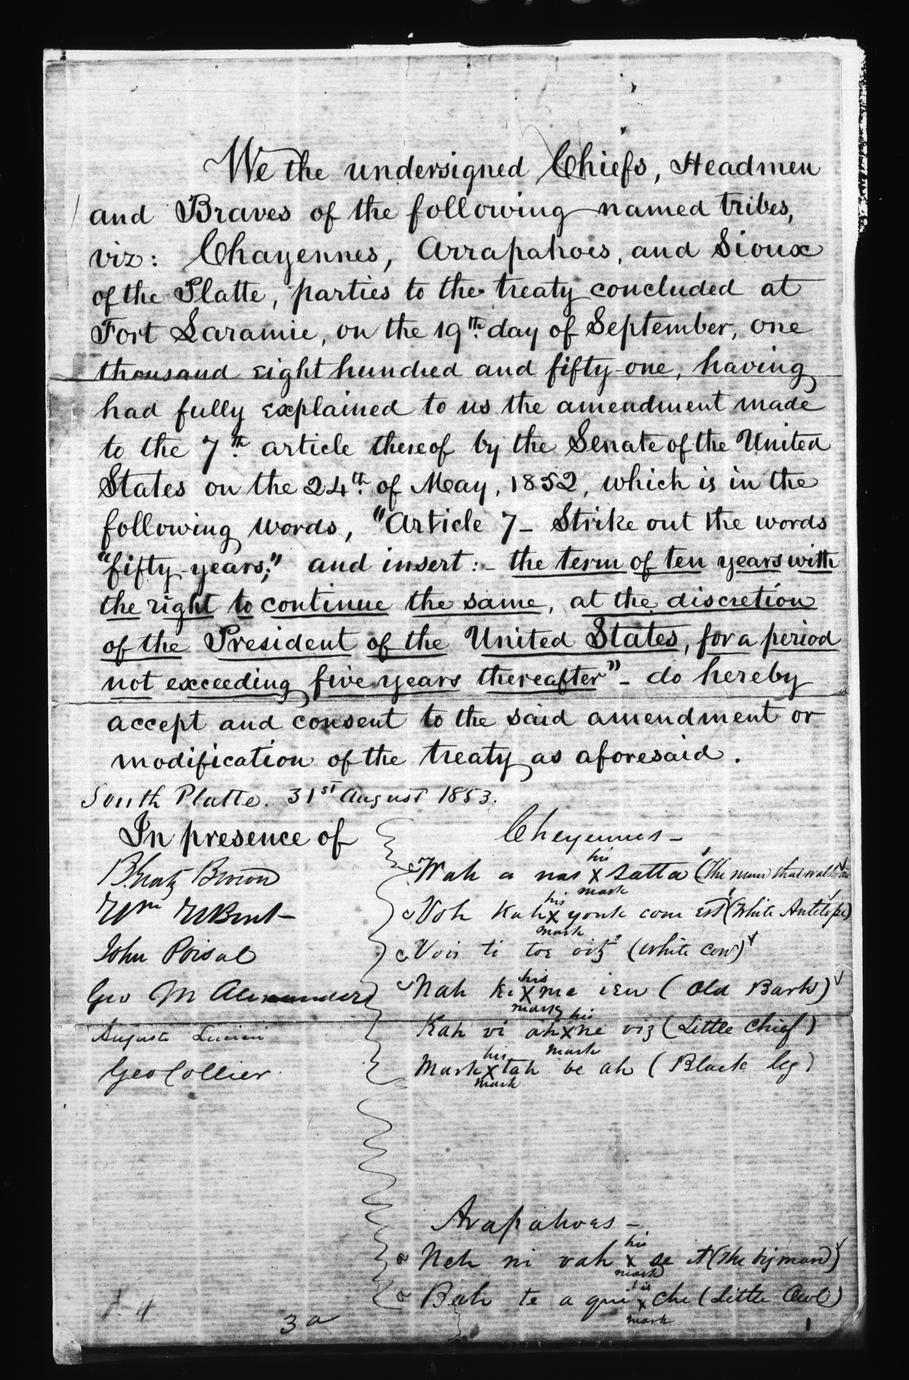 We the undersigned Chiefs, Headmen
and Braves of the following named tribes,
viz: Chayennes, Arrapahoes, and Sioux
of the Platte, parties to the treaty concluded at
Fort Laramie, on the 19th day of September, one
thousand eight hundred and fifty-one, having
had fully explained to us the amendment made
to the 7th article thereof by the Senate of the United
States on the 24th of May, 1852, which is in the
following words, "Article 7 - Strike out the words
"fifty-years;" and insert:- the term of ten years with
the right to continue the same, at the discretion
of the President of the United States, for a period
not exceeding five years thereafter" - do hereby
accept and consent to the said amendment or
modification of the treaty as aforesaid.
South Platte. 31st August 1853.
In presence of
B. Gratz Brown
Wm W Bent
John Poisal
Geo M Alexander
Auguste Lucien
Geo Collier
Cheyennes -
Wah a nas his x mark satta (the man that walks
Voh Kah his x mark yonk com est (White Antelope)
Voir ti toe viz (White Cow)
Nah ki his x mark me ien (Old Bark)
Kah vi ah his x mark ne viz (Little Chief)
Mark his x mark tah be ah (Black leg)
Arapahoes -
Neh ni vah his x mark se it (the big man)
Bah te a qui his x mark che (Little Owl)
3a
1